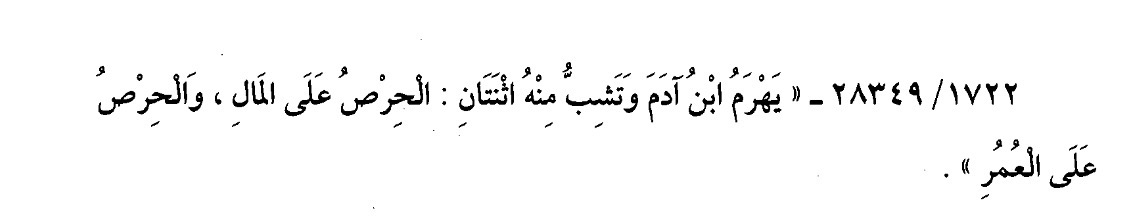 ١٧٢٢/ ٢٨٣٤٩ ـ « يَهْرَمُ ابْنُ آدَمَ وَتَشِبُّ مِنْهُ اثْنَتَانِ : الْحِرْصُ عَلَى المَالِ ، وَالْحِرْصُ
عَلَى الْعُمُرِ » .